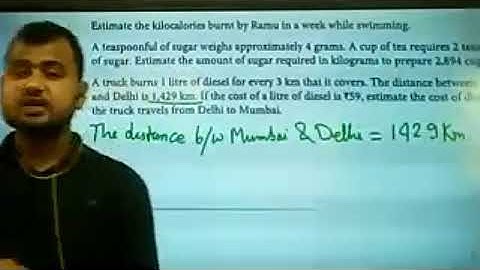 Estimate the kilocalories burnt by Ramu in a week while swimming.
A teaspoonful of sugar weighs approximately 4 grams. A cup of tea requires 2
of sugar. Estimate the amount of sugar required in kilograms to prepare 2,894
A truck burns 1 litre of diesel for every 3 km that it covers. The distance between
and Delhi is 1,429 km. If the cost of a litre of diesel is ₹59, estimate the cost of
the truck travels from Delhi to Mumbai.
The distance b/w Mumbai & Delhi = 1429 Km